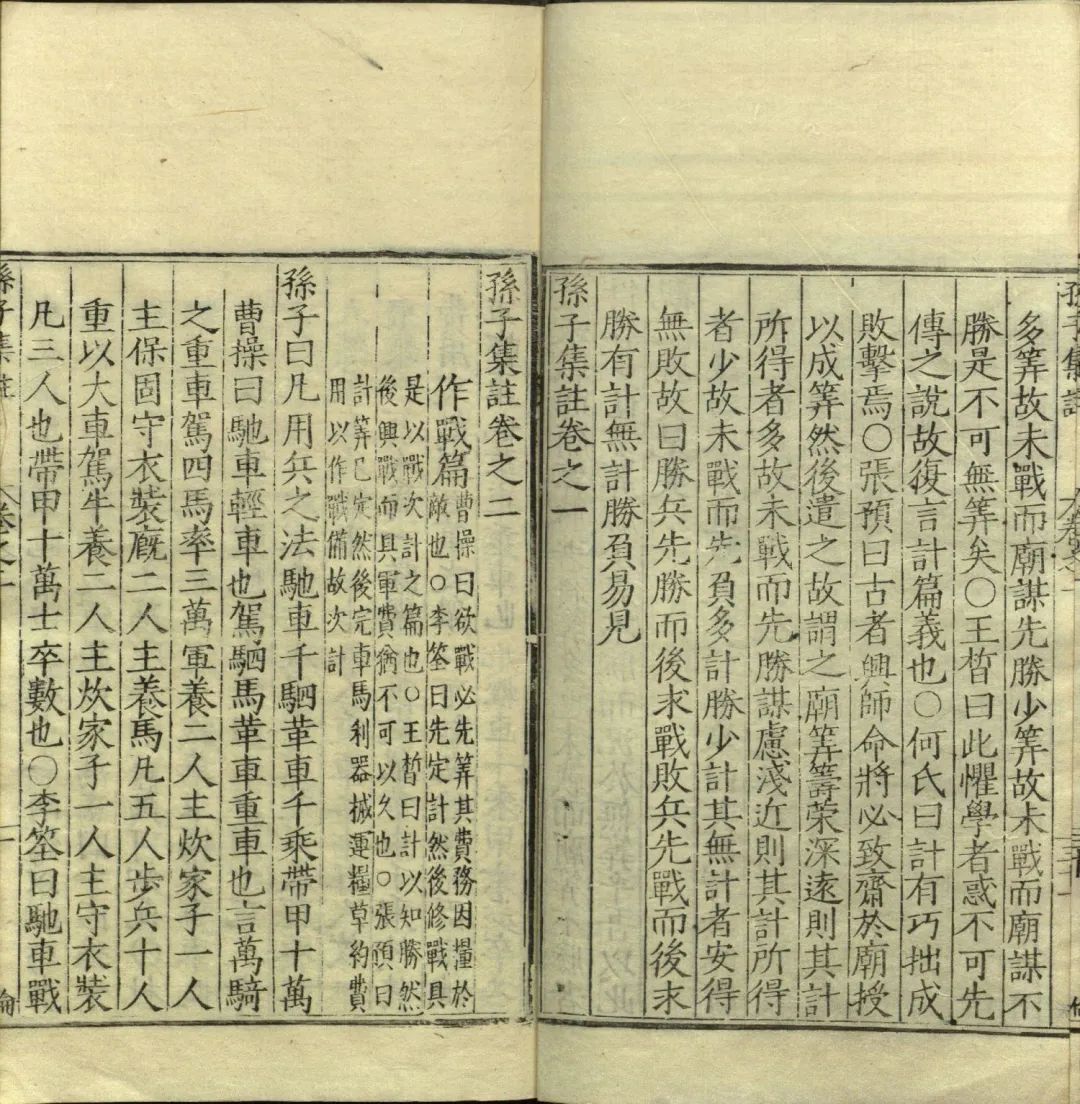 孫子集註
多筭故未戰而廟謀先勝少筭故未戰而廟謀不
勝是不可無筭矣○王晳曰此懼學者惑不可先
傳之說故復言計篇義也○何氏曰計有巧拙成
敗擊焉○張預曰古者興師命將必致齋於廟授
以成筭然後遣之故謂之廟筭籌荣深遠則其計
所得者多故未戰而先勝謀慮淺近則其計所得
者少故未戰而先負多計勝少計其無計者安得
無敗故曰勝兵先勝而後求戰敗兵先戰而後求
勝有計無計勝負易見
孫子集註卷之一
孫子集註卷之二
作戰篇
曹操曰欲戰必先筭其費務因糧於
敵也○李筌曰先定計然後修戰具
是以戰次計之篇也○王晳曰計以知勝然
後興戰而具軍費猶不可以久也○張預曰
計筭已定然後完車馬利器械運糧草約費
用以作戰備故次計
孫子曰凡用兵之法馳車千駟革車千乘帶甲十萬
曹操曰馳車輕車也駕駟馬革車重車也言萬騎
之重車駕四馬率三萬軍養二人主炊家子一人
主保固守衣裝廐二人主養馬凡五人步兵十人
重以大車駕牛養二人主炊家子一人主守衣裝
凡三人也帶甲十萬士卒數也○李筌曰馳車戰
孫子集註